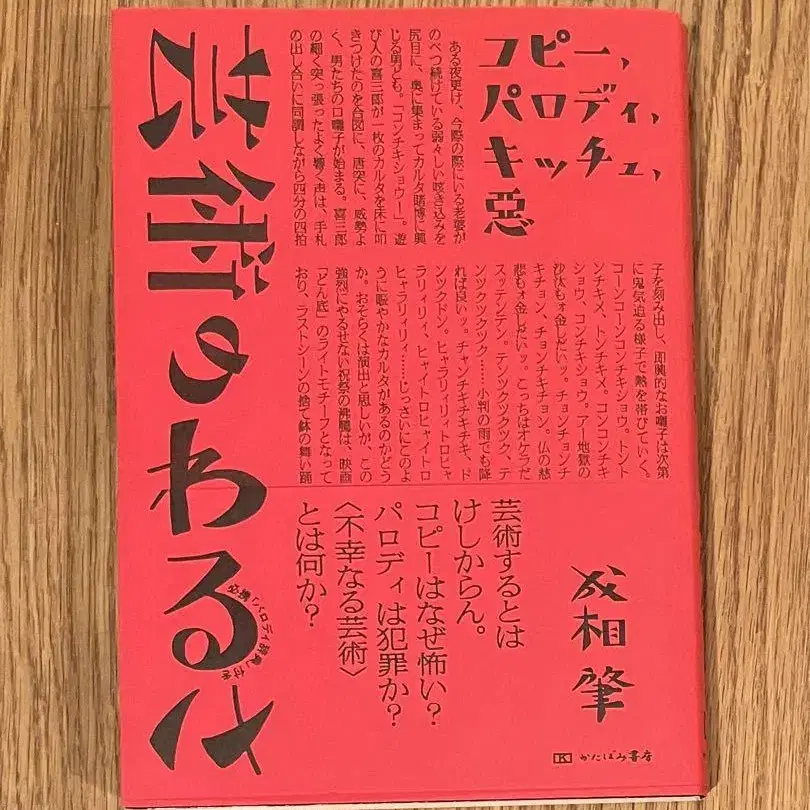 芸術のわるさ
コピー,
パロディ,
キッチュ,
惡
ある夜更け、今際の際にいる老婆が
のべつ続けている弱々しい咳き込みを
尻目に、奥に集まってカルタ賭博に興
じる男ども。「コンチキショウー」。遊
び人の喜三郎が一枚のカルタを床に叩
きつけたのを合図に、唐突に、威勢よ
く、男たちの口囃子が始まる。喜三郎
の細く突っ張ったよく響く声は、手札
の出し合いに同調しながら四分の四拍
子を刻み出し、即興的なお囃子は次第
に鬼気迫る様子で熱を帯びていく。
コーンコーンコンチキショウ。トント
ンチキメ、トンチキメ。コンコンチキ
ショウ、コンチキショウ。アー地獄の
沙汰もォ金しだいッ。チョンチョンチ
キチョン、チョンチキチョン。仏の慈
悲もォ金しだいッ。こっちはオケラだ
スッテンテン。テンツクツクツク、テ
ンツクツクツク……小判の雨でも降
れば良いッ。チャンチキチキチキ、ド
ンツクドン。ヒャラリィリィトロヒャ
ラリィリィ、ヒャイトロヒャイトロ
ヒャラリィリィ……じっさいにこのよ
うに賑やかなカルタがあるのかどう
か。おそらくは演出と思しいが、この
強烈にやるせない祝祭の沸騰は、映画
『どん底』のライトモチーフとなって
おり、ラストシーンの捨て鉢の舞い踊
芸術するとは
けしからん。
コピーはなぜ怖い？
パロディは犯罪か？
〈不幸なる芸術〉
とは何か？
必携「パロディ辞典」付き
成相肇
K かたばみ書房